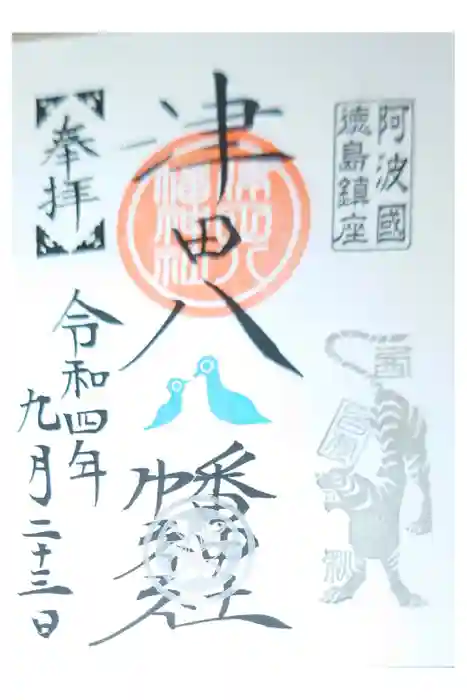 阿波國
徳島鎮座
奉拝
津田八
幡神社
令和四年
九月二十三日